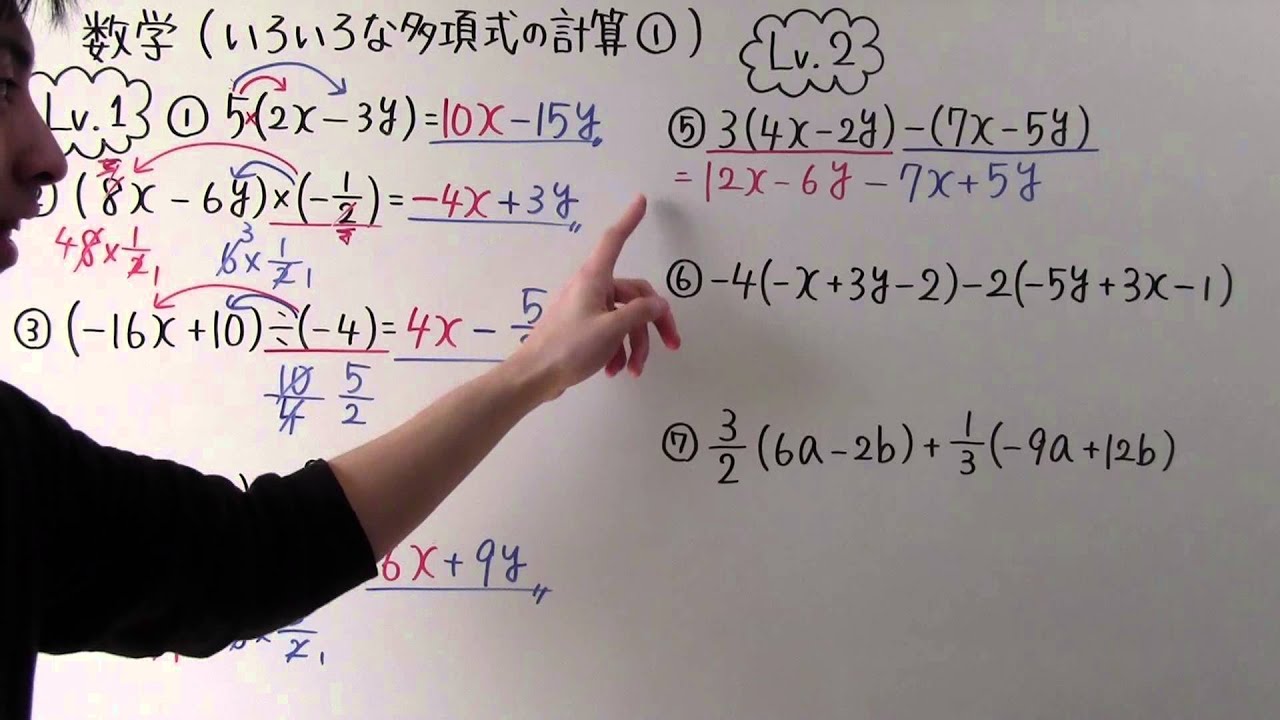 数学（いろいろな多項式の計算①）
Lv.1
① 5(2x-3y)=10x-15y
(8x-6y)×(-1/2)=-4x+3y
48×1/2 1 6 3×1/2 1
③ (-16x+10)÷(-4)=4x-5
10/4 5/2
6x+9y
Lv.2
⑤ 3(4x-2y)-(7x-5y)
=12x-6y-7x+5y
⑥ -4(-x+3y-2)-2(-5y+3x-1)
⑦ 3/2(6a-2b)+1/3(-9a+12b)